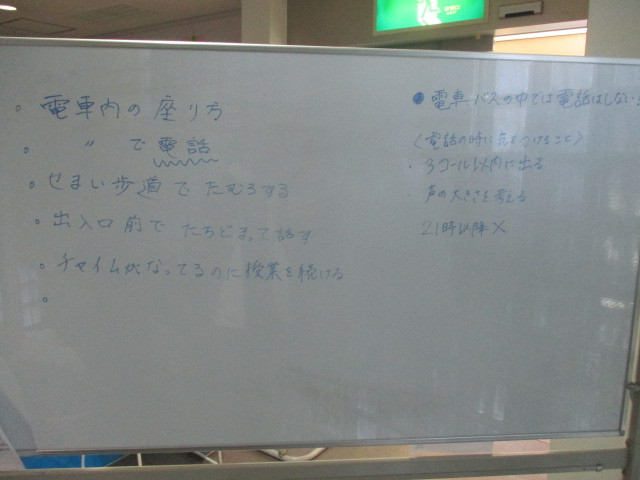 。電車内の座り方
。 〃 で電話
。せまい歩道でたむろする
。出入口前でたちどまって話す
。チャイムがなってるのに授業を続ける
。
●電車バスの中では電話はしない
〈電話の時に気をつけること〉
・3コール以内に出る
声の大きさを考える
21時以降×